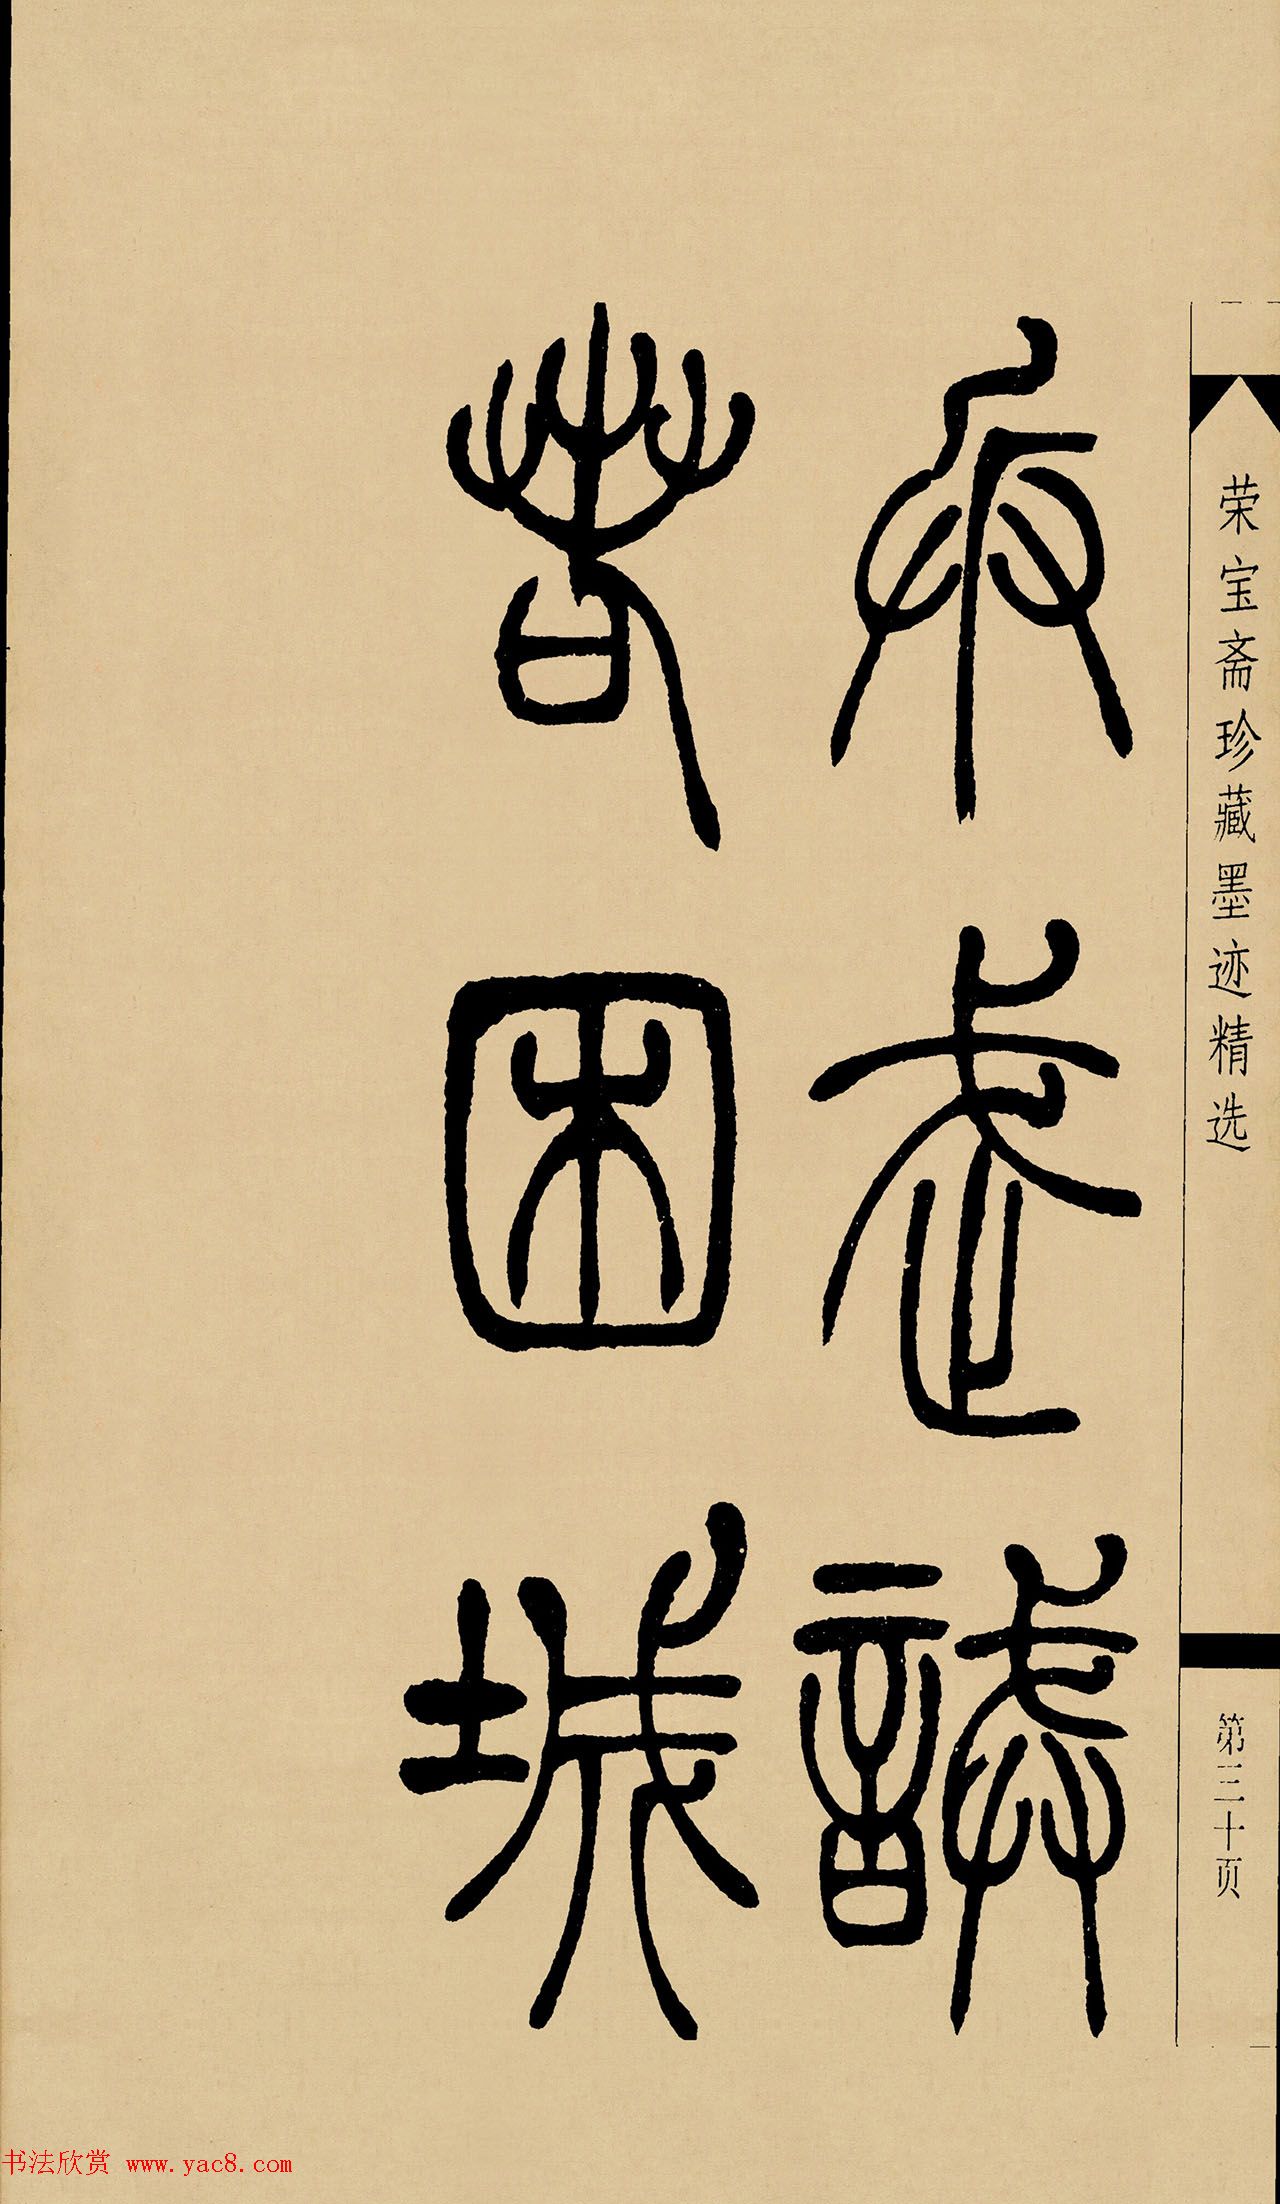 荣宝斋珍藏墨迹精选
第三十页
武謼
若困城
书法欣赏 www.yac8.com